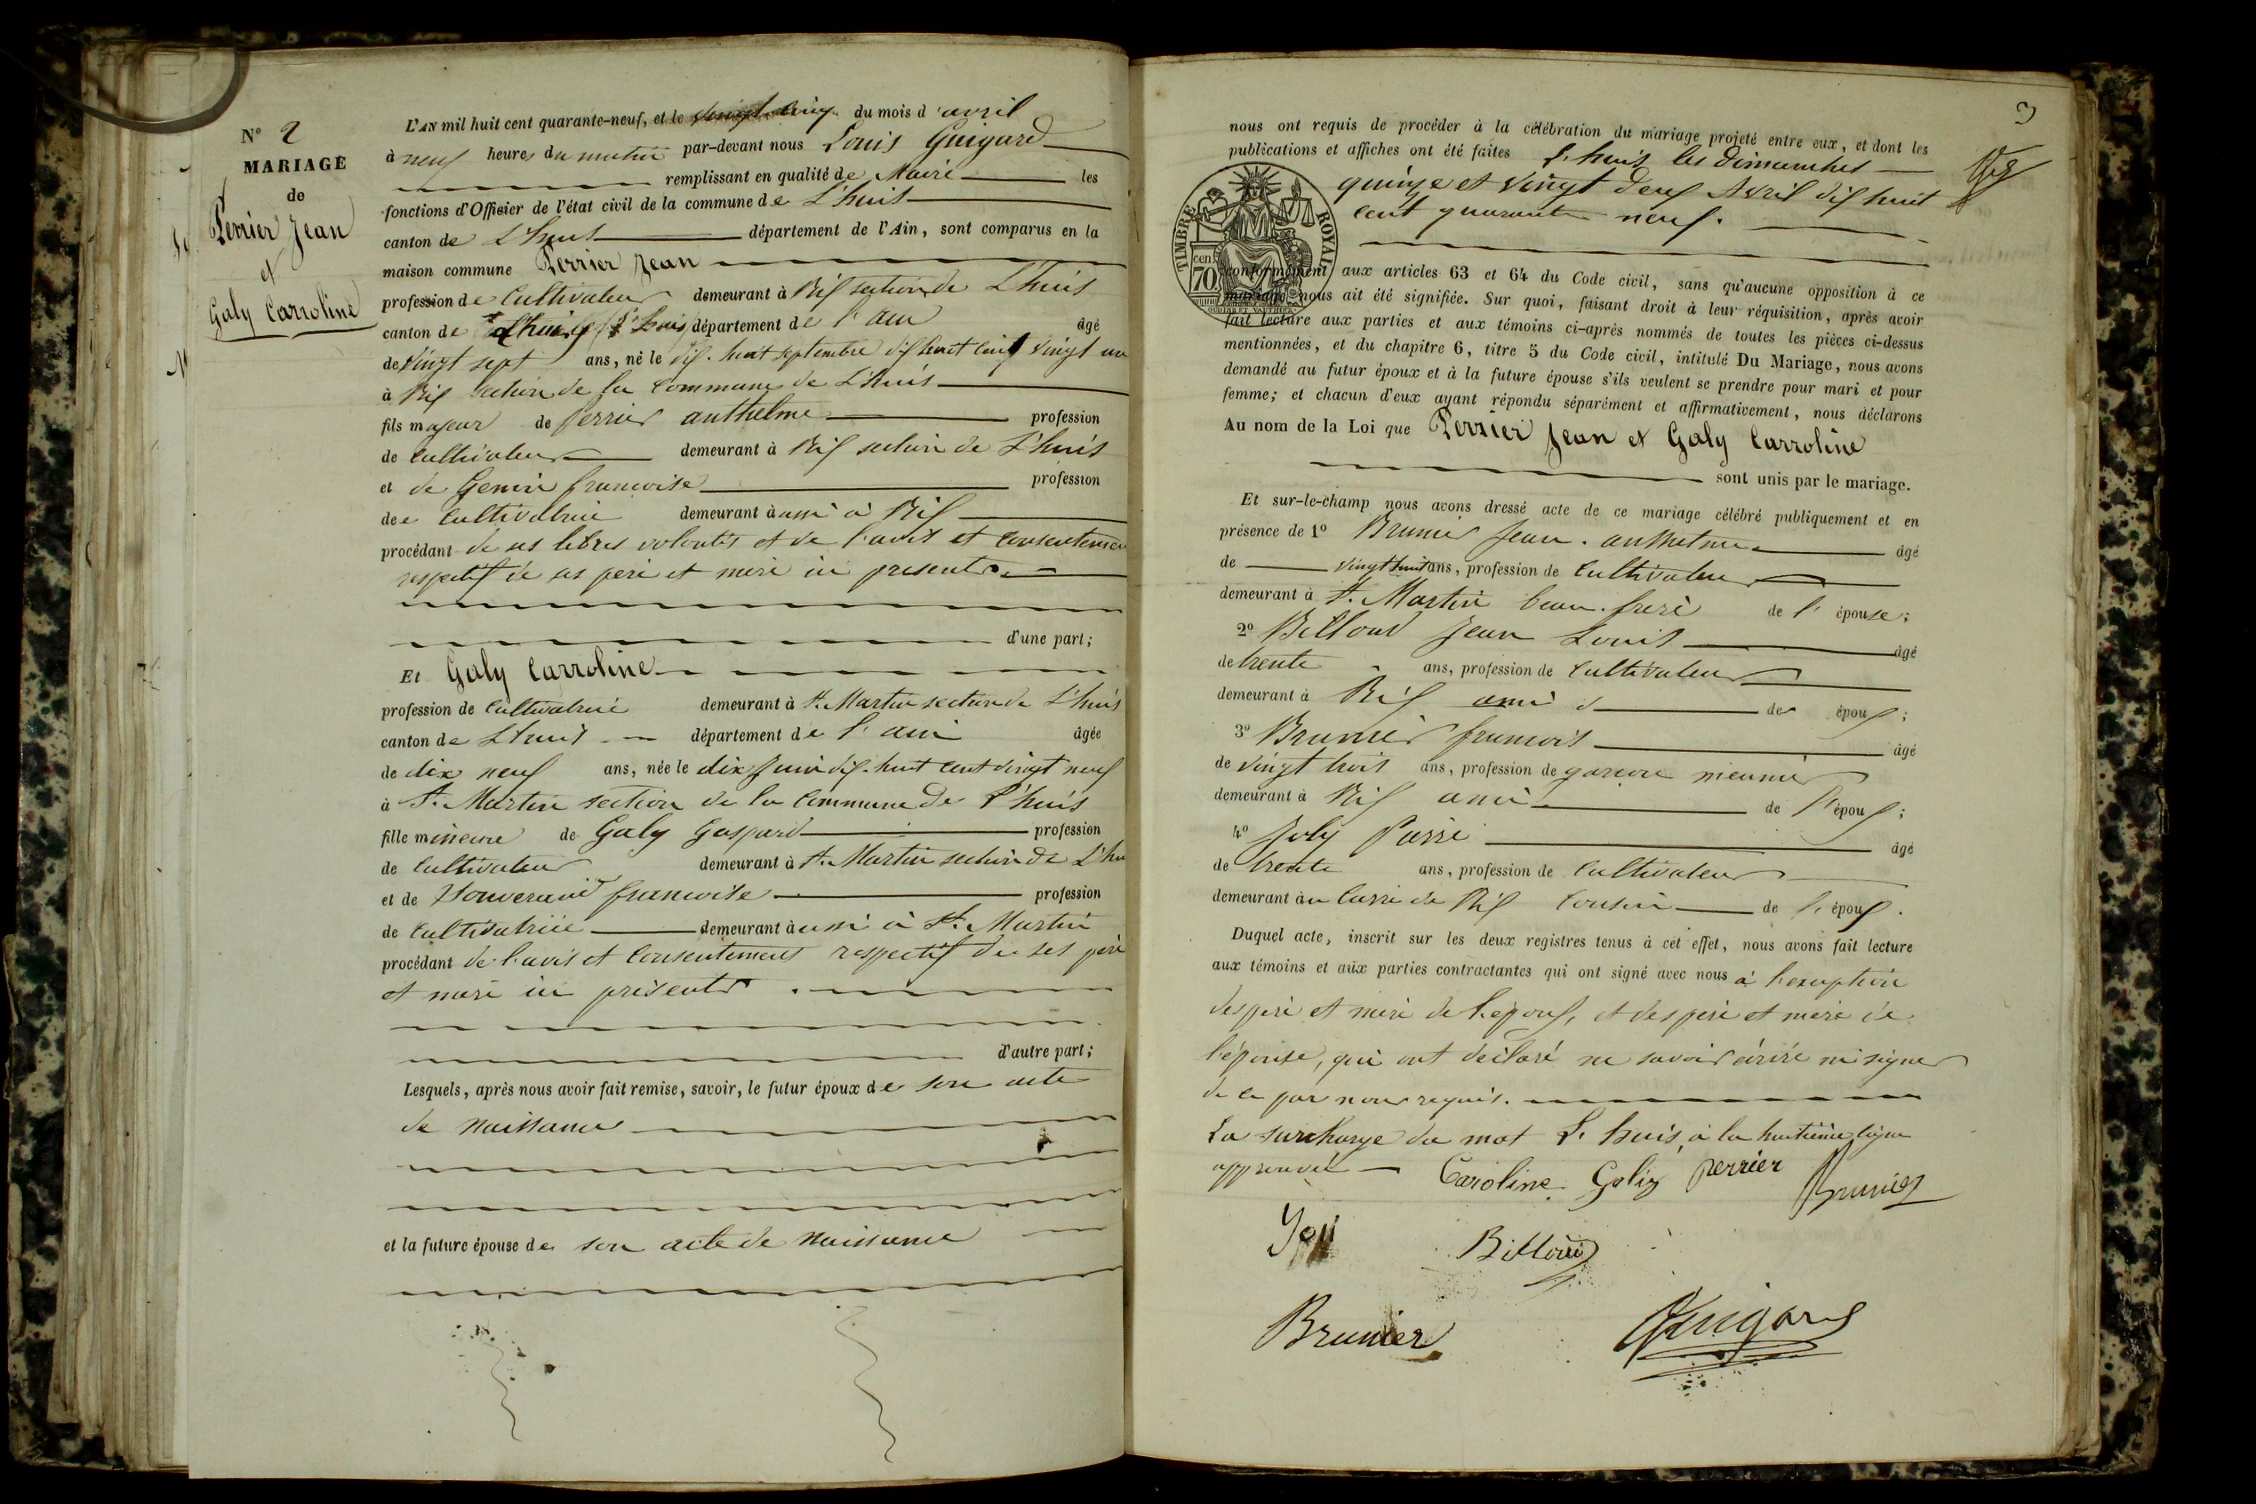 N° 2
MARIAGE
de
Perrier Jean
et
Galy Carroline
L'AN mil huit cent quarante-neuf, et le vingt-cinq du mois d'avril
à neuf heures du matin par-devant nous Louis Guigard
remplissant en qualité de Maire les
fonctions d'Officier de l'état civil de la commune de L'huis
canton de L'huis département de l'Ain, sont comparus en la
maison commune Perrier Jean
profession de Cultivateur demeurant à Rix section de L'huis
canton de L'huis département de l'ain âgé
de vingt sept ans, né le dix-huit septembre dix huit cent vingt un
à Rix section de la commune de L'huis
fils majeur de Perrier anthelme profession
de cultivateur demeurant à Rix section de L'huis
et de Genin francoise profession
de cultivatrice demeurant à aussi à Rix
procédant de ses libres volontés et de l'avis et consentement
respectif de ses père et mère ici présents
d'une part;
Et Galy Carroline
profession de cultivatrice demeurant à St. Martin section de L'huis
canton de L'huis département de l'ain âgée
de dix neuf ans, née le dix juin dix-huit cent vingt neuf
à St. Martin section de la commune de L'huis
fille mineure de Galy Gaspard profession
de cultivateur demeurant à St. Martin section de L'hu
et de francoise profession
de cultivatrice demeurant à aussi à St. Martin
procédant de l'avis et consentement respectif de ses père
et mère ici présents.
d'autre part;
Lesquels, après nous avoir fait remise, savoir, le futur époux de son acte
de naissance
et la future épouse de son acte de naissance
3
nous ont requis de procéder à la célébration du mariage projeté entre eux, et dont les
publications et affiches ont été faites L'huis les dimanches
quinze et vingt deux Avril dix huit
cent quarante neuf.
TIMBRE ROYAL
70 cent
conformément aux articles 63 et 64 du Code civil, sans qu'aucune opposition à ce
mariage nous ait été signifiée. Sur quoi, faisant droit à leur réquisition, après avoir
fait lecture aux parties et aux témoins ci-après nommés de toutes les pièces ci-dessus
mentionnées, et du chapitre 6, titre 5 du Code civil, intitulé Du Mariage, nous avons
demandé au futur époux et à la future épouse s'ils veulent se prendre pour mari et pour
femme; et chacun d'eux ayant répondu séparément et affirmativement, nous déclarons
Au nom de la Loi que Perrier Jean et Galy Carroline
sont unis par le mariage.
Et sur-le-champ nous avons dressé acte de ce mariage célébré publiquement et en
présence de 1° Brunier Jean. anthelme âgé
de vingt huit ans, profession de Cultivateur
demeurant à St. Martin beau-frère de l'épouse;
2° Billoud Jean Louis âgé
de trente ans, profession de cultivateur
demeurant à Rix ami de époux;
3° Brunier francois âgé
de vingt trois ans, profession de garcon meunier
demeurant à Rix ami de l'époux;
4° Joly Pierre âgé
de trente ans, profession de cultivateur
demeurant à de Rix cousin de l'époux.
Duquel acte, inscrit sur les deux registres tenus à cet effet, nous avons fait lecture
aux témoins et aux parties contractantes qui ont signé avec nous à l'exception
des père et mère de l'époux, et des père et mère de
l'épouse, qui ont déclaré ne savoir écrire ni signer
de ce par nous requis.
La surcharge du mot L'huis à la huitième ligne
approuvée Caroline Galiy perrier Brunier
Billoud
Brunier Guigard